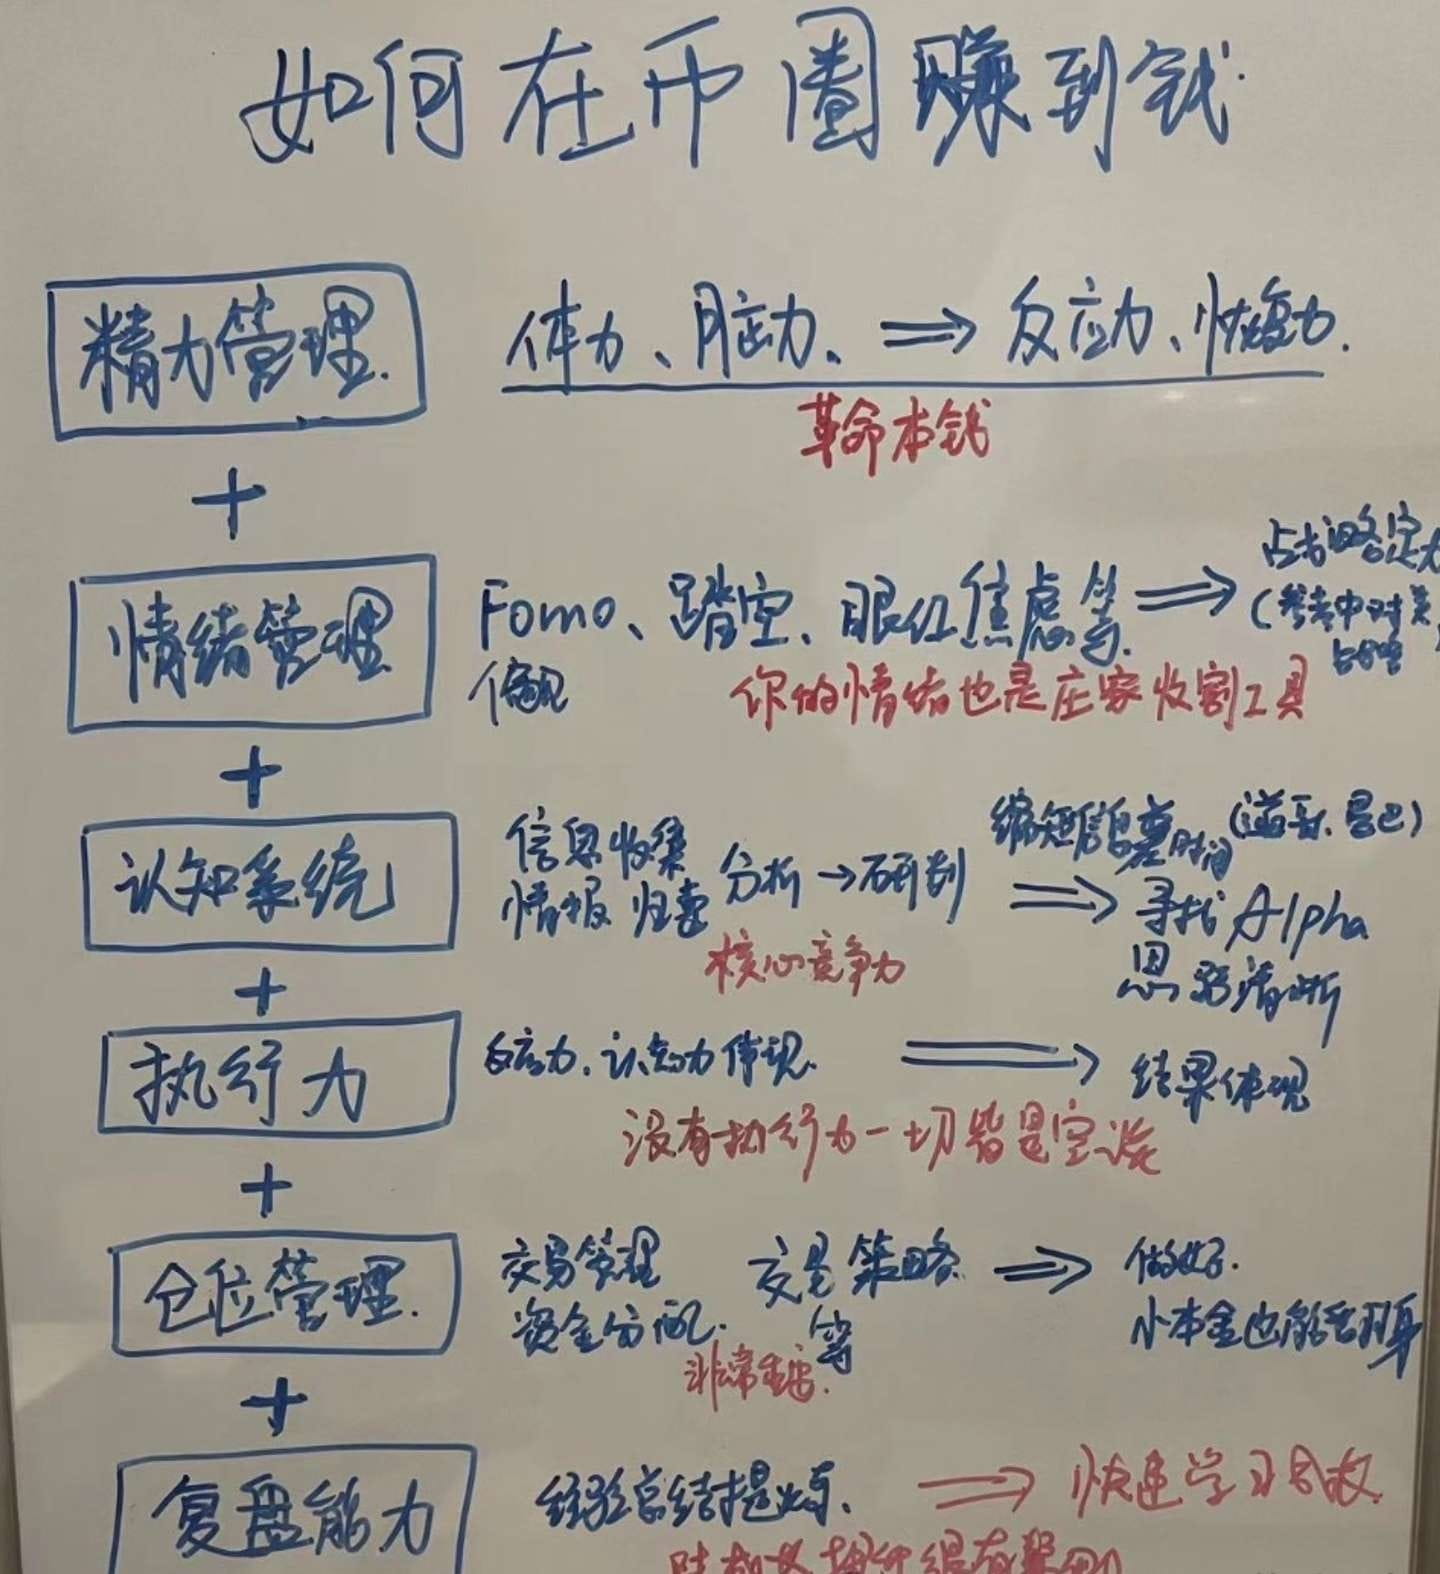 如何在币圈赚到钱
精力管理 体力、脑力、⇒ 反应力、恢复力.
革命本钱
+
情绪管理 Fomo、踏空、眼红焦虑等. ⇒ 战略定力
偏见 (参考中对美
战略)
你的情绪也是庄家收割工具
+
认知系统 信息收集 分析→研判 ⇒ 缩短信息差时间
情报 归集 寻找Alpha
核心竞争力 思路清晰
+
执行力 反应力、认知力体现. ⇒ 结果体现
没有执行力一切皆是空谈
+
仓位管理. 交易管理 交易策略 ⇒ 做好.
资金分配. 等 小本金也能翻身
非常重要.
+
复盘能力 经验总结提炼、 ⇒ 快速学习